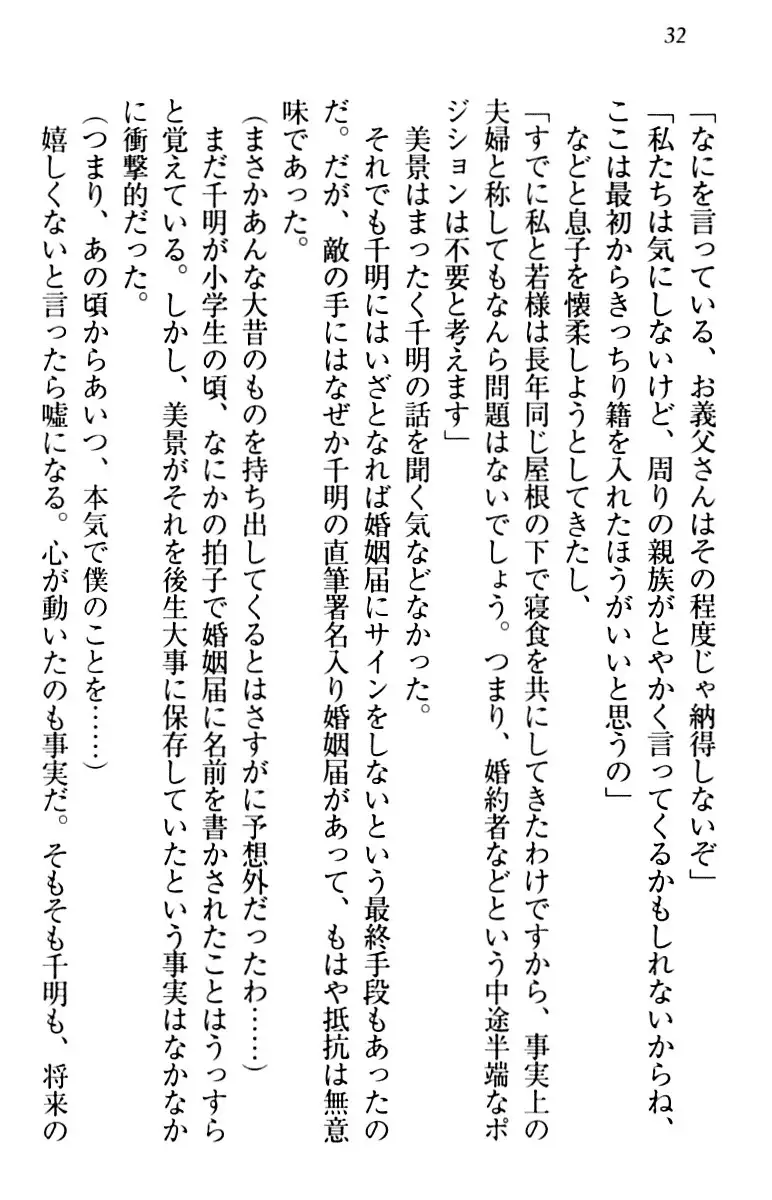 32
「なにを言っている、お義父さんはその程度じゃ納得しないぞ」
「私たちは気にしないけど、周りの親族がとやかく言ってくるかもしれないからね、
ここは最初からきっちり籍を入れたほうがいいと思うの」
などと息子を懐柔しようとしてきたし、
「すでに私と若様は長年同じ屋根の下で寝食を共にしてきたわけですから、事実上の
夫婦と称してもなんら問題はないでしょう。つまり、婚約者などという中途半端なポ
ジションは不要と考えます」
美景はまったく千明の話を聞く気などなかった。
それでも千明にはいざとなれば婚姻届にサインをしないという最終手段もあったの
だ。だが、敵の手にはなぜか千明の直筆署名入り婚姻届があって、もはや抵抗は無意
味であった。
（まさかあんな大昔のものを持ち出してくるとはさすがに予想外だったわ……）
まだ千明が小学生の頃、なにかの拍子で婚姻届に名前を書かされたことはうっすら
と覚えている。しかし、美景がそれを後生大事に保存していたという事実はなかなか
に衝撃的だった。
（つまり、あの頃からあいつ、本気で僕のことを……）
嬉しくないと言ったら嘘になる。心が動いたのも事実だ。そもそも千明も、将来の